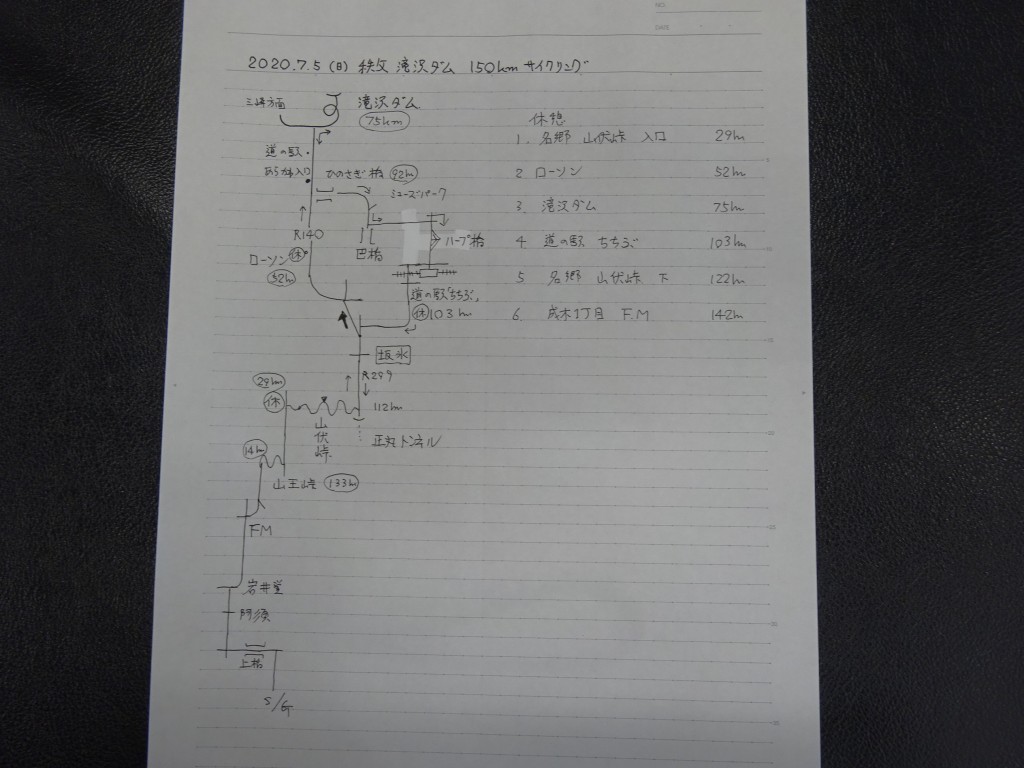 NO.
DATE
2020.7.5 (日) 秩父 滝沢ダム 150km サイクリング
三峰方面
滝沢ダム
75km
道の駅・
あらかわ入口
ひのさぎ橋 92km
ミューズパーク
R140
巴橋
ハープ橋
ローソン 休
52km
道の駅「ちちぶ」
休 103km
坂氷
R299
29km
休
山伏峠
112km
正丸トンネル
14km
山王峠 133km
FM
岩井堂
阿須
上橋
S/G
休憩
1. 名郷 山伏峠 入口 29km
2 ローソン 52km
3. 滝沢ダム 75km
4 道の駅 ちちぶ 103km
5 名郷 山伏峠 下 122km
6. 成木1丁目 FM 142km